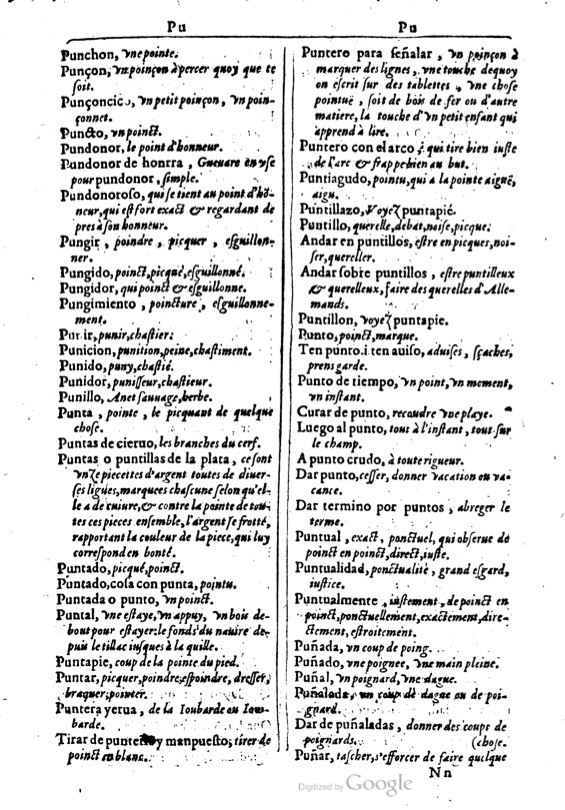 Pu
Punchon, vne pointe.
Punçon, vn poinçon à percer quoy que te
soit.
Punçoncico, vn petit poinçon, vn poin-
çonnet.
Puncto, vn poinct.
Pundonor, le point d'honneur.
Pundonor de honrra, Gueuare en vse
pour pundonor, simple.
Pundonoroso, qui se tient au point d'hō-
neur, qui est fort exact & regardant de
pres à son honneur.
Pungir, poindre, picquer, esguillon-
ner.
Pungido, poinct, picqué, esguillonné.
Pungidor, qui poinct & esguillonne.
Pungimiento, poincture, esguillonne-
ment.
Punir, punir, chastier.
Punicion, punition, peine, chastiment.
Punido, puny, chastié.
Punidor, punisseur, chastieur.
Punillo, Anet sauuage, herbe.
Punta, pointe, le picquant de quelque
chose.
Puntas de cieruo, les branches du cerf.
Puntas o puntillas de la plata, ce sont
vnze piecettes d'argent toutes de diuer-
ses ligues, marquees chascune selon qu'el-
le a de cuiure, & contre la pointe de tou-
tes ces pieces ensemble, l'argent se frotté,
rapportant la couleur de la piece, qui luy
correspond en bonté.
Puntado, picqué, poinct.
Puntado, cosa con punta, pointu.
Puntada o punto, vn poinct.
Puntal, vne estaye, vn appuy, vn bois de-
bout pour estayer: le fonds du nauire de-
puis le tillac iusques à la quille.
Puntapie, coup de la pointe du pied.
Puntar, picquer, poindre, espoindre, dresser,
braquer, pointer.
Puntera yerua, de la Ioubarde au Iou-
barde.
Tirar de puntero y manpuesto, tirer de
poinct en blanc.
Pu
Puntero para señalar, vn poinçon à
marquer des lignes, vne touche dequoy
on escrit sur des tablettes, vne chose
pointuë, soit de bois de fer ou d'autre
matiere, la touche d'vn petit enfant qui
apprend à lire.
Puntero con el arco, qui tire bien iuste
de l'arc & frappe bien au but.
Puntiagudo, pointu, qui a la pointe aiguë,
aigu.
Puntillazo, Voyez puntapié.
Puntillo, querelle, debat, noise, picque.
Andar en puntillos, estre en picques, noi-
ser, quereller.
Andar sobre puntillos, estre puntilleux
& querelleux, faire des querelles d'Alle-
mands.
Puntillon, voyez puntapie.
Punto, poinct, marque.
Ten punto. i ten auiso, aduises, sçaches,
prens garde.
Punto de tiempo, vn point, vn moment,
vn instant.
Curar de punto, recoudre vne playe.
Luego al punto, tout à l'instant, tout sur
le champ.
A punto crudo, à toute rigueur.
Dar punto, cesser, donner vacation ou va-
cance.
Dar termino por puntos, abreger le
terme.
Puntual, exact, ponctuel, qui obserue de
poinct en poinct, direct, iuste.
Puntualidad, ponctualité, grand esgard,
iustice.
Puntualmente, iustement, de poinct en
poinct, ponctuellement, exactement, dire-
ctement, estroitement.
Puñada, vn coup de poing.
Puñado, vne poignee, vne main pleine.
Puñal, vn poignard, vne dague.
Puñalada, vn coup de dague ou de poi-
gnard.
Dar de puñaladas, donner des coups de
poignards. (chose.
Puñar, tascher, s'efforcer de faire quelque
Nn
Digitized by Google